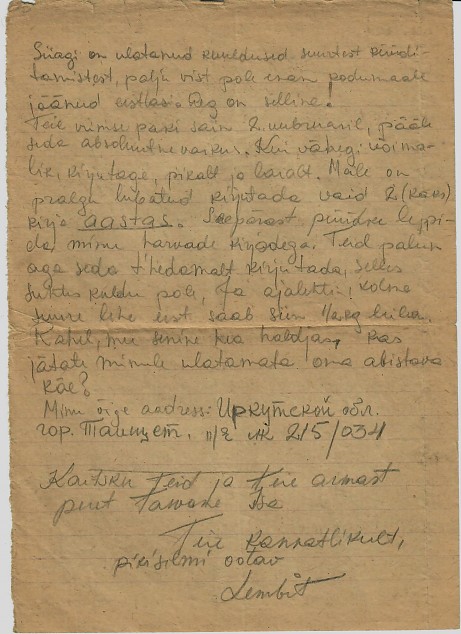 Siiagi on ulatanud kuuldused suurtest küüdi-
tamistest, palju vist pole enam kodumaale
jäänud eestlasi. Aeg on selline!
Teie viimse paki sain 2. veebruaril, pääle
seda absoluutne vaikus. Kui vähegi võima-
lik, kirjutage, pikalt ja laialt. Meile on
praegu lubatud kirjutada vaid 2 (kaks)
kirja aastas. Seepärast püüdke leppi-
da minu harvade kirjadega. Teid palun
aga seda tihedamalt kirjutada, selles
suhtes keeldu pole. Ja ajalehti!
suure lehe eest saab siin
Kahel, mu senine hea haldjas, kas
jätate minule ulatamata oma abistava
käe?
Minu õige aadress: Иркутской обл.
гор. Тайшет, п/я ЛК 215/034
Kaitsku Teid ja Teie armast
peret Taevane Isa
Teie kannatlikult,
pikisilmi ootav
Lembit